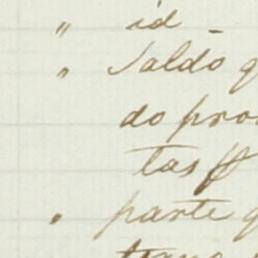 " id _
" Saldo q
do pro
tas ff
" parte q